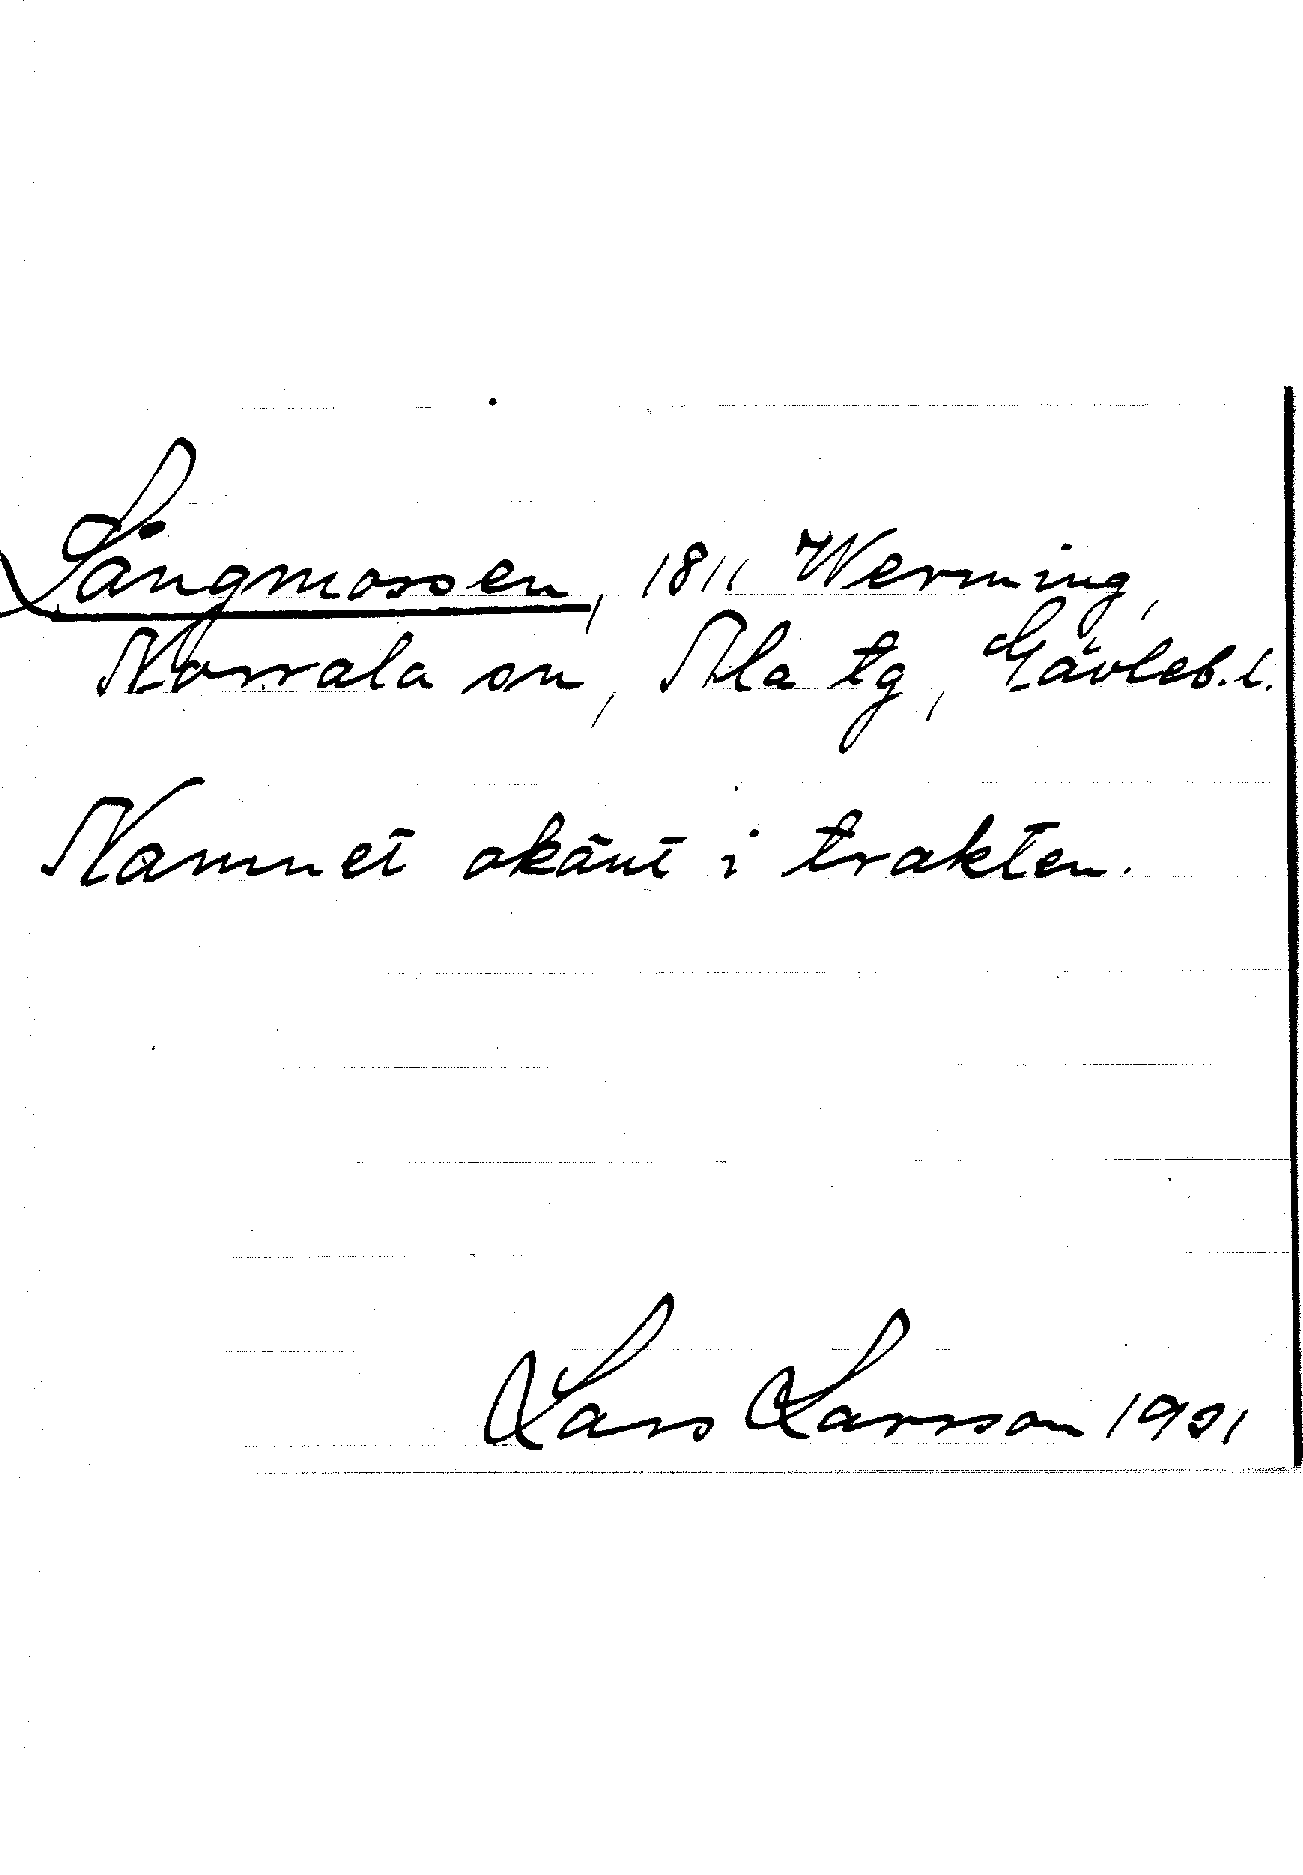 Långmossen, 1811 Werming,
Norrala sn, Ala tg, Gävleb. l.
Namnet okänt i trakten.
Lars Larsson 1921